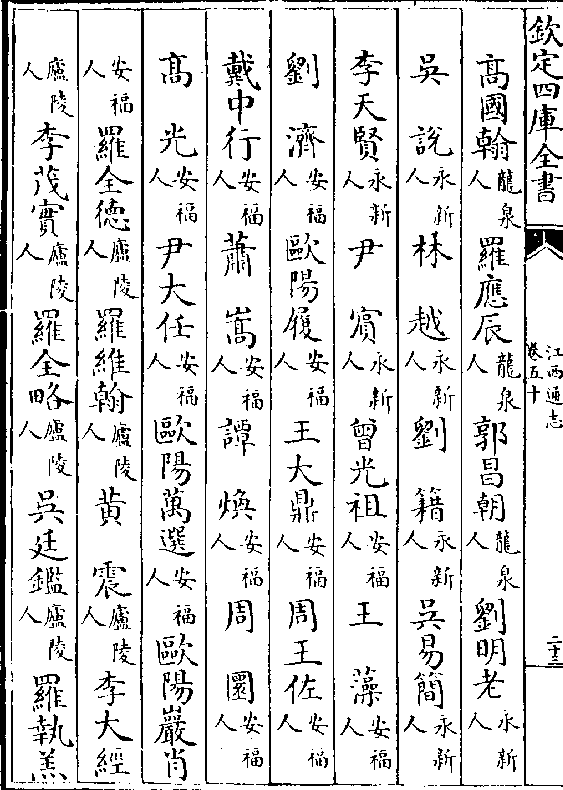 欽定四庫全書
江西通志
卷五十
二十三
高國翰龍泉人羅應辰龍泉人郭昌朝龍泉人劉明老永新人
吳說永新人林越永新人劉籍永新人吳易簡永新人
李天賢永新人尹賔永新人曾光祖安福人王藻安福人
劉濟安福人歐陽履安福人王大鼎安福人周王佐安福人
戴中行安福人蕭嵩安福人譚煥安福人周圜安福人
髙光安福人尹大任安福人歐陽萬選安福人歐陽巖肖
安福人羅全徳廬陵人羅維翰廬陵人黄震廬陵人李大經
廬陵人李茂實廬陵人羅全略廬陵人吳廷鑑廬陵人羅執羔